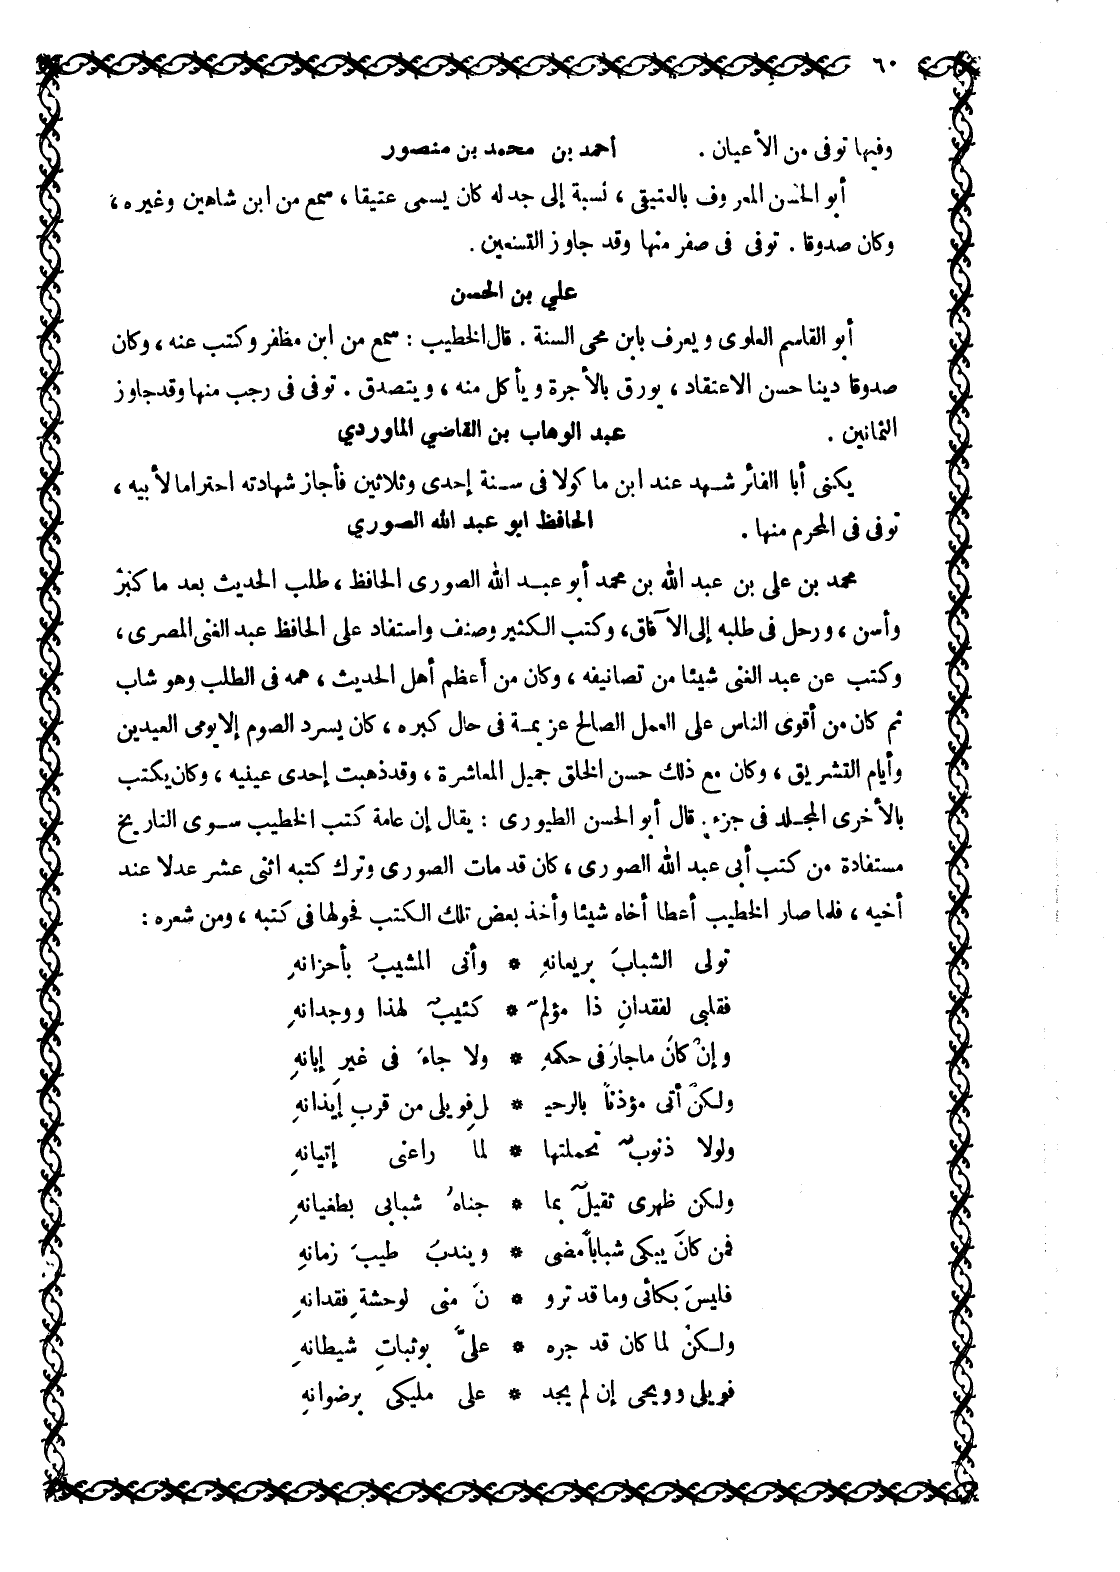 ٦٠
وفيها توفى من الأعيان . أحمد بن محمد بن منصور
أبو الحسن المعروف بالعتيقى ، نسبة إلى جد له كان يسمى عتيقا ، سمع من ابن شاهين وغيره ،
وكان صدوقا . توفى فى صفر منها وقد جاوز التسعين .
علي بن الحسن
أبو القاسم العلوى ويعرف بابن محى السنة . قال الخطيب : سمع من ابن مظفر وكتب عنه ، وكان
صدوقا دينا حسن الاعتقاد ، يورق بالأجرة ويأكل منه ، ويتصدق . توفى فى رجب منها وقد جاوز
الثمانين . عبد الوهاب بن القاضي الماوردي
يكنى أبا الفائز شهد عند ابن ماكولا فى سنة إحدى وثلاثين فأجاز شهادته احتراما لأبيه ،
توفى فى المحرم منها . الحافظ ابو عبد الله الصوري
محمد بن على بن عبد الله بن محمد أبو عبد الله الصورى الحافظ ، طلب الحديث بعد ما كبر
وأسن ، ورحل فى طلبه إلى الآفاق ، وكتب الكثير وصنف واستفاد على الحافظ عبد الغنى المصرى ،
وكتب عن عبد الغنى شيئا من تصانيفه ، وكان من أعظم أهل الحديث ، همه فى الطلب وهو شاب
ثم كان من أقوى الناس على العمل الصالح عزيمة فى حال كبره ، كان يسرد الصوم إلا يومى العيدين
وأيام التشريق ، وكان مع ذلك حسن الخلق جميل المعاشرة ، وقد ذهبت إحدى عينيه ، وكان يكتب
بالأخرى المجلد فى جزء . قال أبو الحسن الطيورى : يقال إن عامة كتب الخطيب سوى التاريخ
مستفادة من كتب أبى عبد الله الصورى ، كان قد مات الصورى وترك كتبه اثنى عشر عدلا عند
أخيه ، فلما صار الخطيب أعطا أخاه شيئا وأخذ بعض تلك الكتب فحولها فى كتبه ، ومن شعره :
تولى الشبابَ بريعانهِ * وأتى المشيبُ بأحزانهِ
فقلبى لفقدانِ ذا مؤلمٌ * كئيبٌ لهذا ووجدانهِ
وإنْ كانَ ماجارَ فى حكمهِ * ولا جاءَ فى غيرِ إبانهِ
ولكنْ أتى مؤذناً بالرحيـ * ـلِ فويلى من قربِ إيذانهِ
ولولا ذنوبٌ تحملتها * لما راعنى إتيانهِ
ولكن ظهرى ثقيلٌ بما * جناهُ شبابى بطغيانهِ
فمن كانَ يبكى شباباً مضى * ويندبُ طيبَ زمانهِ
فليسَ بكائى وما قد ترو * نَ منى لوحشةِ فقدانهِ
ولكنْ لما كان قد جره * علىَّ بوثباتِ شيطانهِ
فويلى وويحى إن لم يجد * على مليكى برضوانهِ